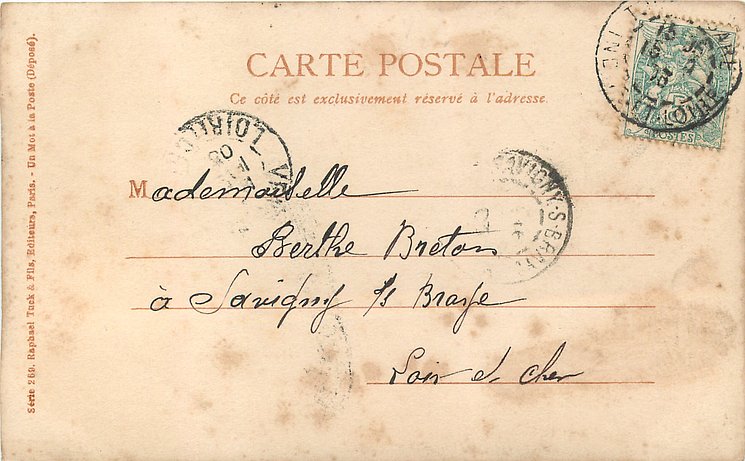 CARTE POSTALE
Ce côté est exclusivement réservé à l'adresse.
Mademoiselle
Berthe Breton
à Savigny s/s Braye
Loir et cher
Série 269. Raphael Tuck & Fils, Editeurs, Paris. - Un Mot à la Poste (Déposé).
SAVIGNY-S-BRAYE
POSTES